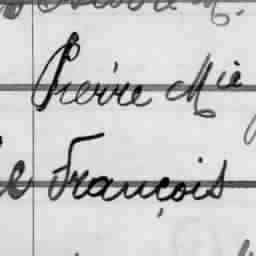 Pierre Mie
François